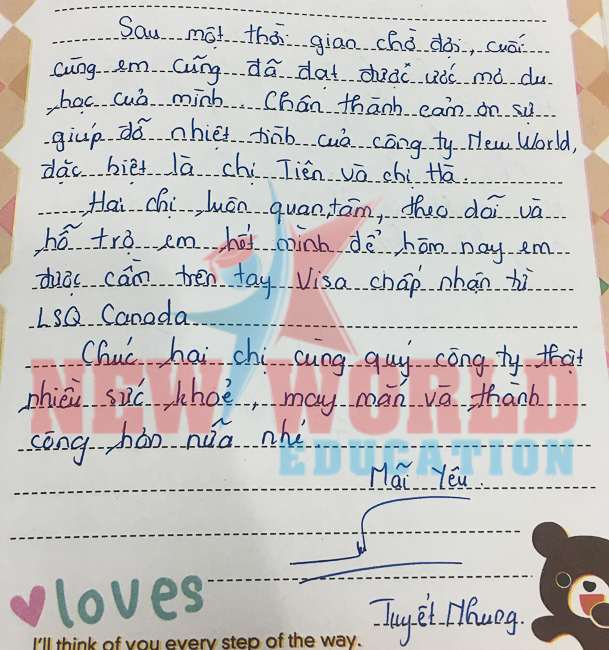 Sau một thời gian chờ đợi, cuối
cùng em cũng đã đạt được ước mơ du
học của mình. Chân thành cảm ơn sự
giúp đỡ nhiệt tình của công ty New World,
đặc biệt là chị Tiên và chị Hà.
Hai chị luôn quan tâm, theo dõi và
hỗ trợ em hết mình để hôm nay em
được cầm trên tay Visa chấp nhận từ
LSQ Canada
Chúc hai chị cùng quý công ty thật
nhiều sức khoẻ, may mắn và thành
công hơn nữa nhé
NEW WORLD
EDUCATION
Mãi Yêu.
Tuyết Nhung.
loves
I'll think of you every step of the way.